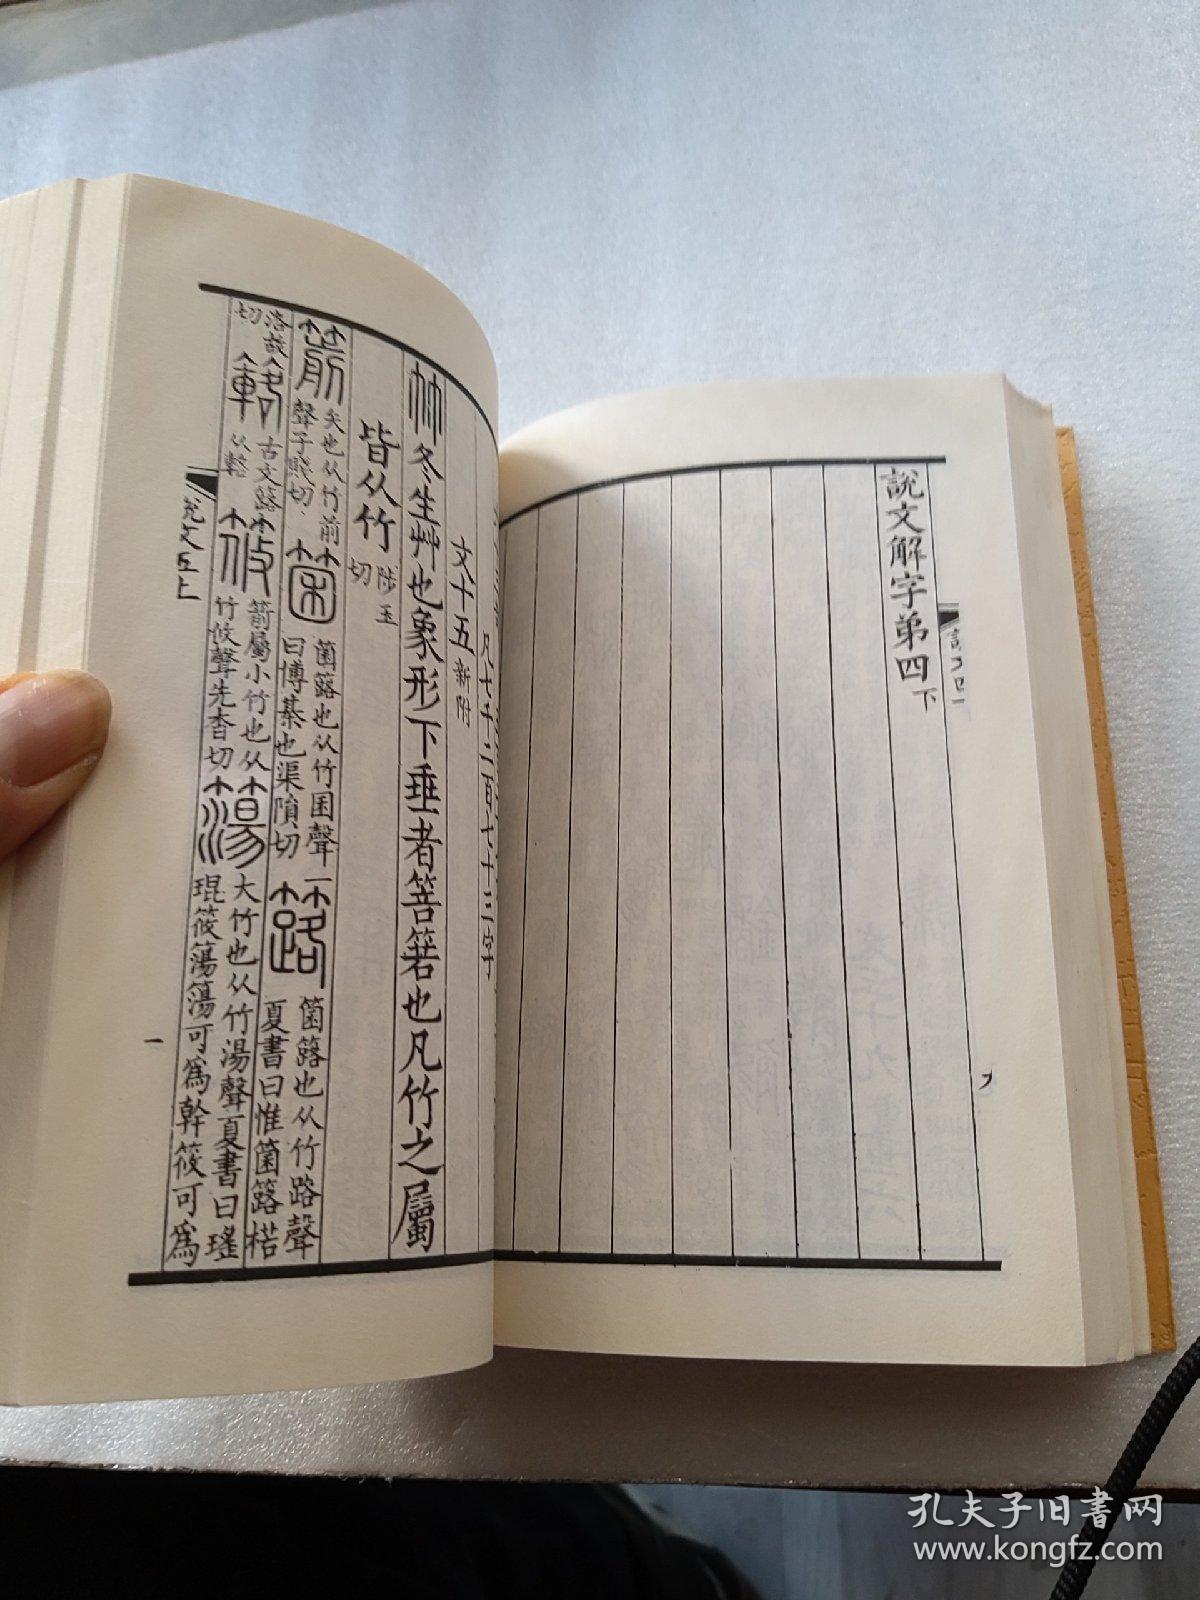 說文解字弟四下
凡七千二百七十三字
文十五新附
冬生艸也象形下垂者箁箬也凡竹之屬
皆从竹陟玉切
箭矢也从竹前聲子賤切
箘箘簬也从竹囷聲一曰博棊也渠隕切
簬箘簬也从竹路聲夏書曰惟箘簬楛
洛故切
古文簬从輅
筱箭屬小竹也从竹攸聲先杳切
簜大竹也从竹湯聲夏書曰瑤琨筱簜簜可爲幹筱可爲
說文五上
一
九
孔夫子旧书网
www.kongfz.com